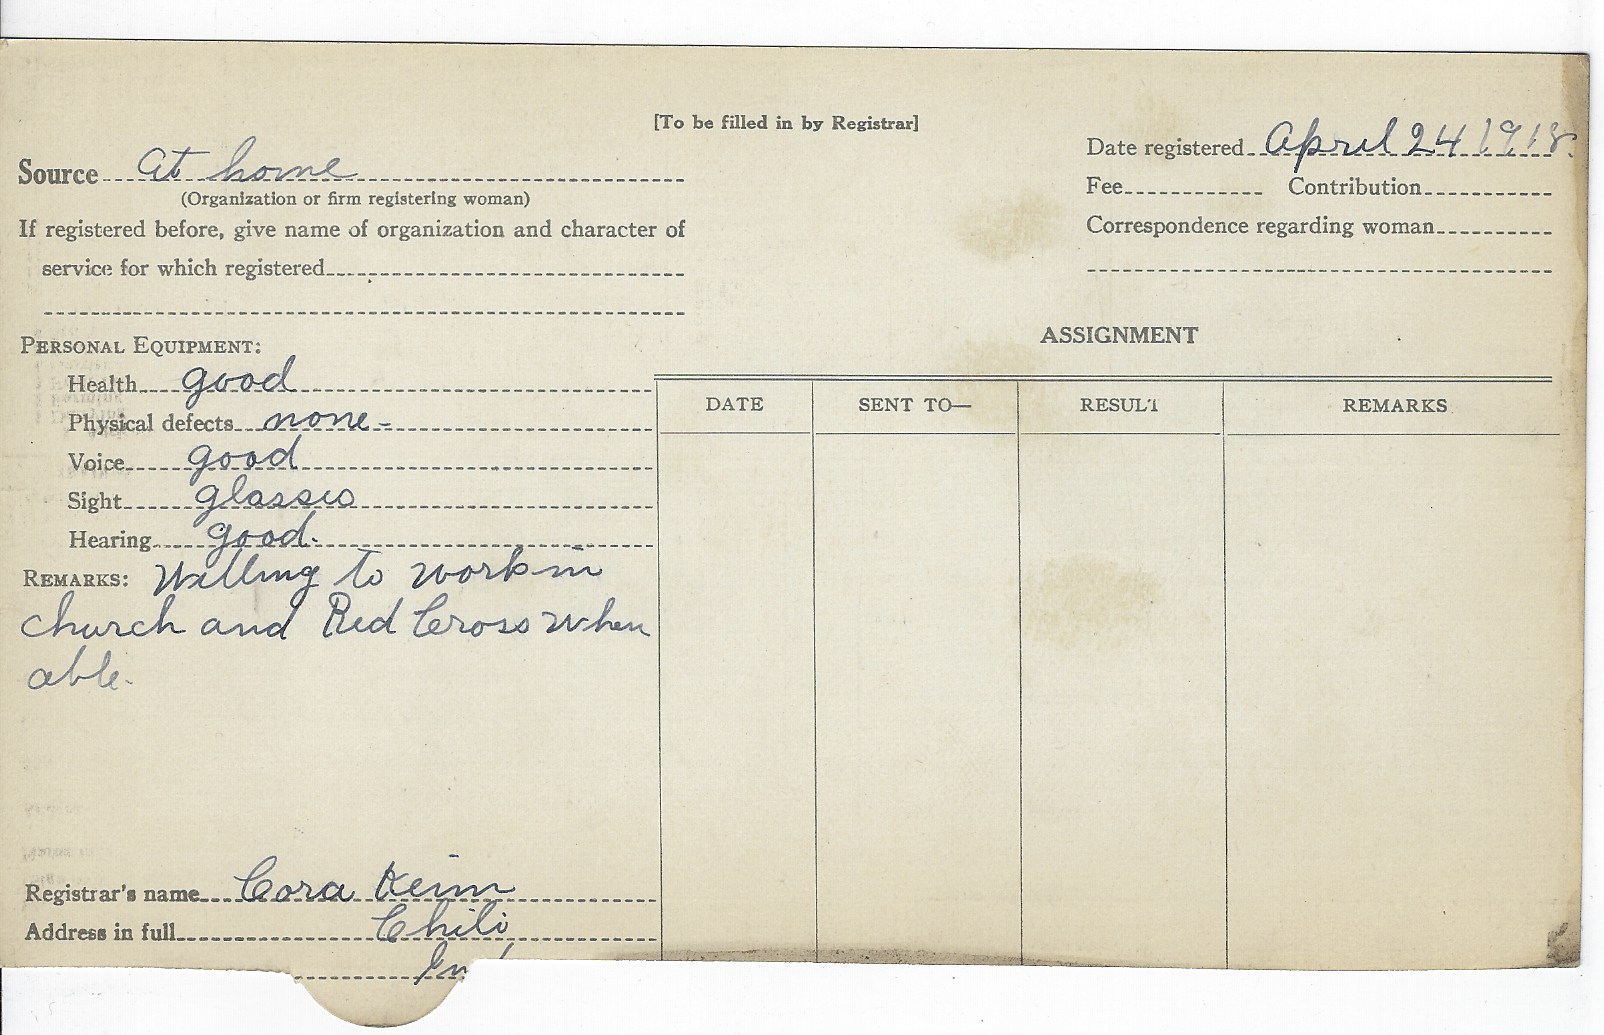 [To be filled in by Registrar]
Date registered April 24 1918.
Source At home
(Organization or firm registering woman)
Fee Contribution
If registered before, give name of organization and character of
Correspondence regarding woman
service for which registered
ASSIGNMENT
PERSONAL EQUIPMENT:
Health good
Physical defects none-
Voice good
Sight glasses
Hearing good.
DATE SENT TO— RESULT REMARKS
REMARKS: Willing to work in
church and Red Cross when
able.
Registrar's name Cora Keim
Address in full Chili
Ind